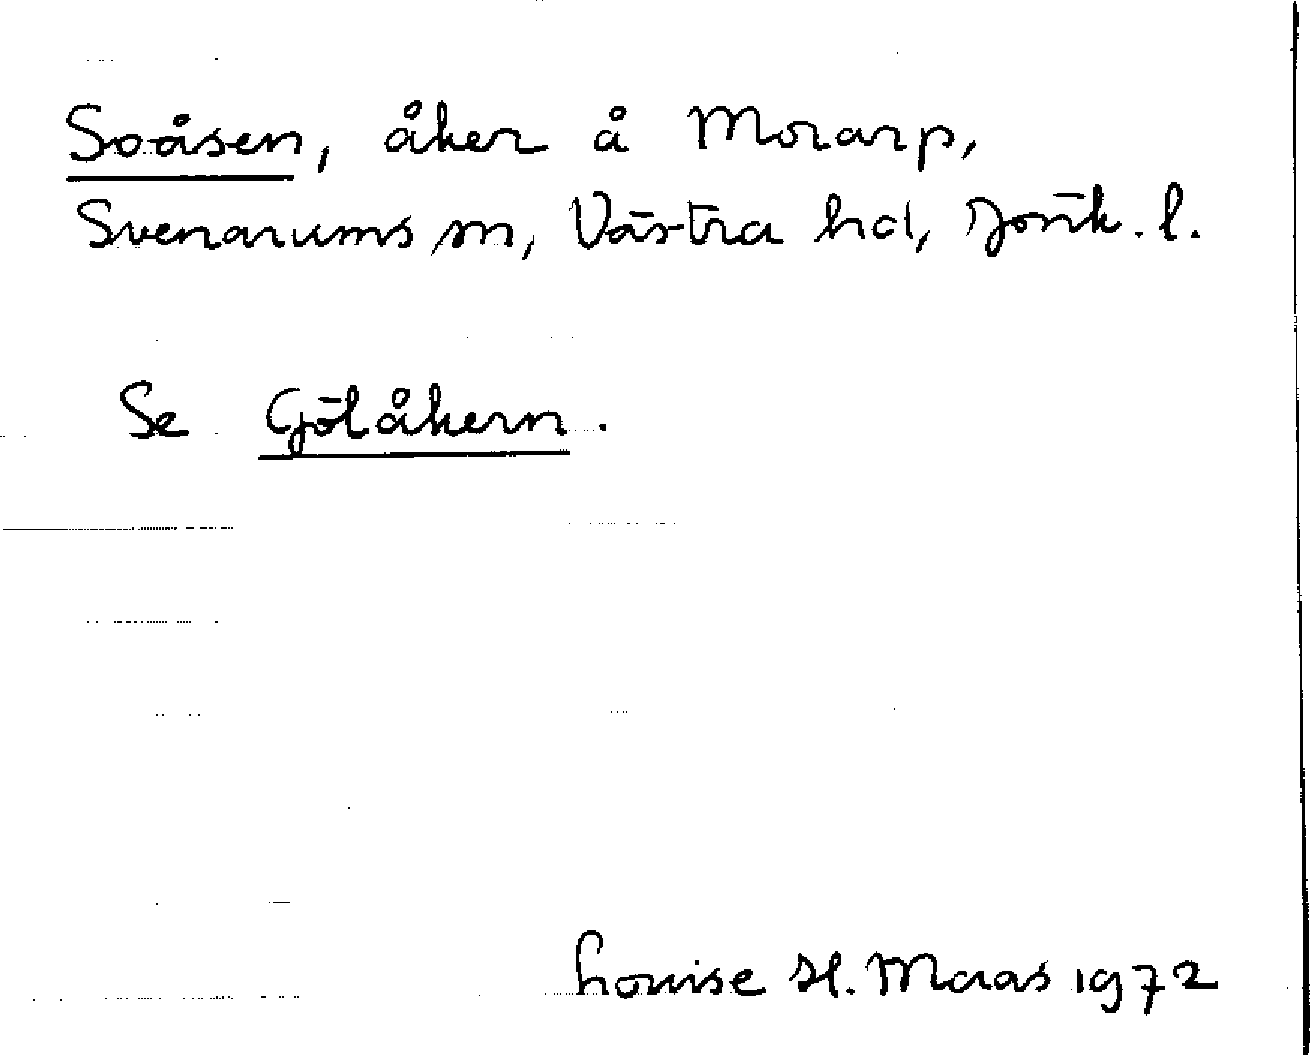 Soåsen, åker å Morarp,
Svenarums sn, Västra hd, Jönk. l.
Se Götåkern.
Louise H. Maas 1972